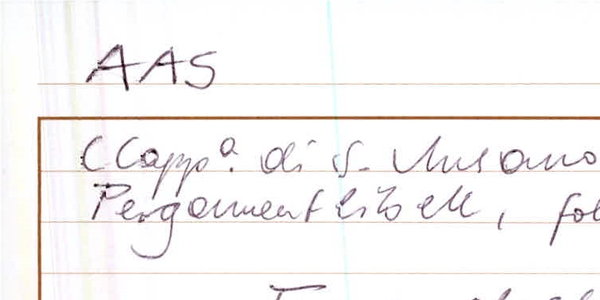 AAS
(Cappª. di S. Ansano
Pergamentlibell, fol